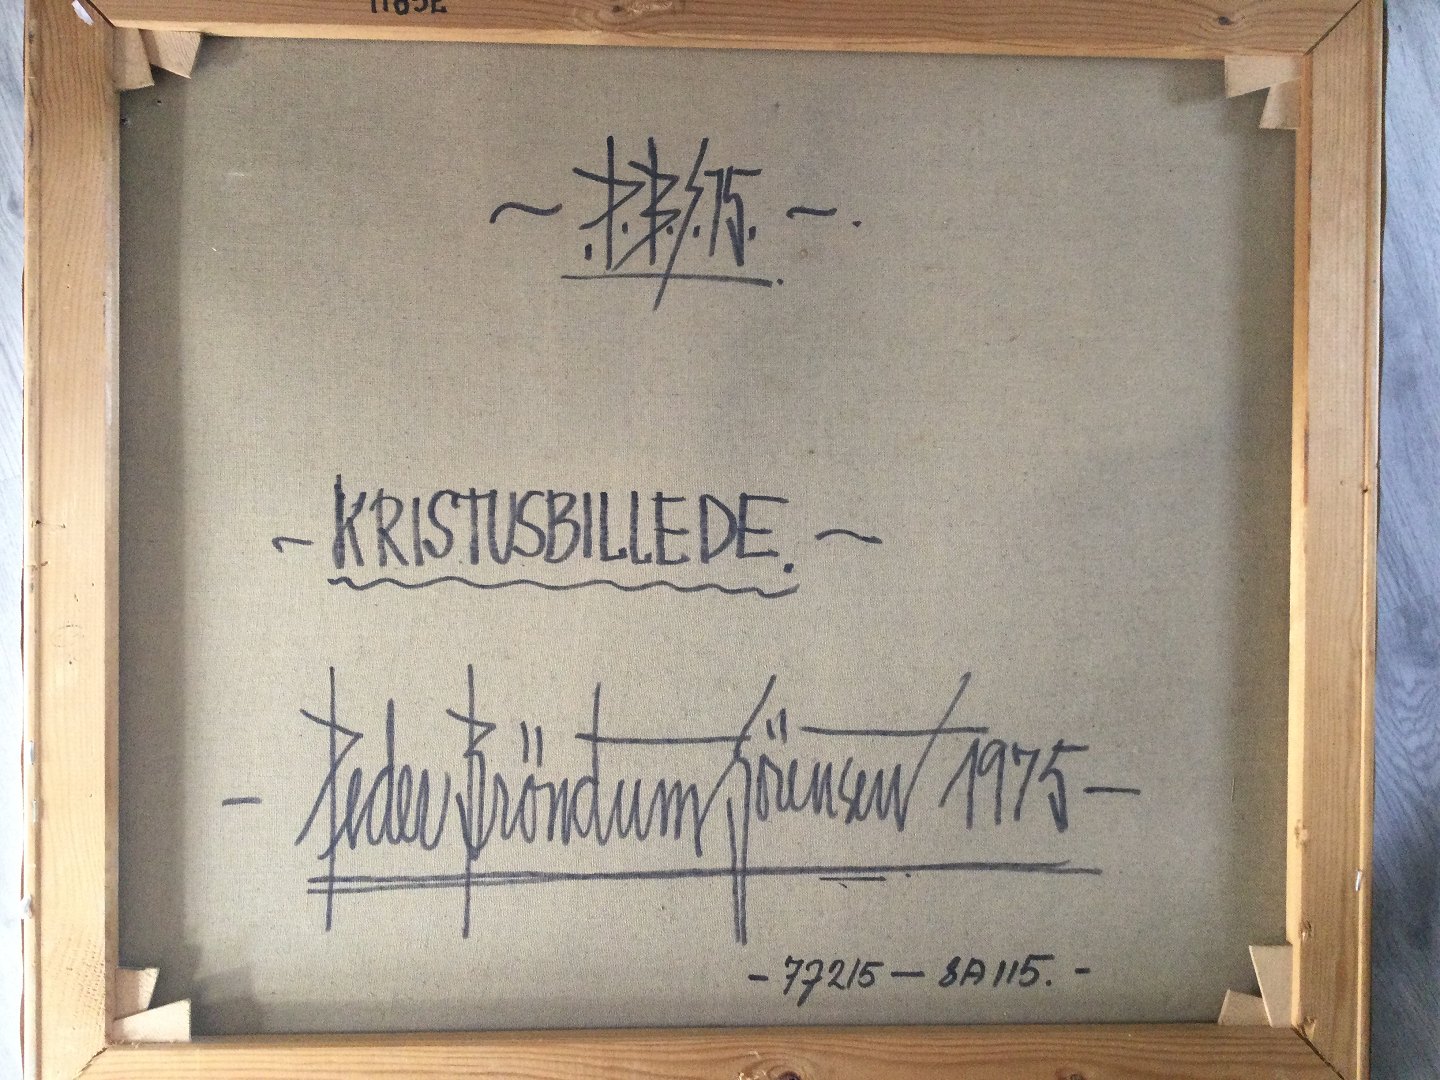 ~ P.B.S.75. ~.
~ KRISTUSBILLEDE. ~
- Peder Bröndum Sörensen 1975 -
- 77215 - SA 115. -